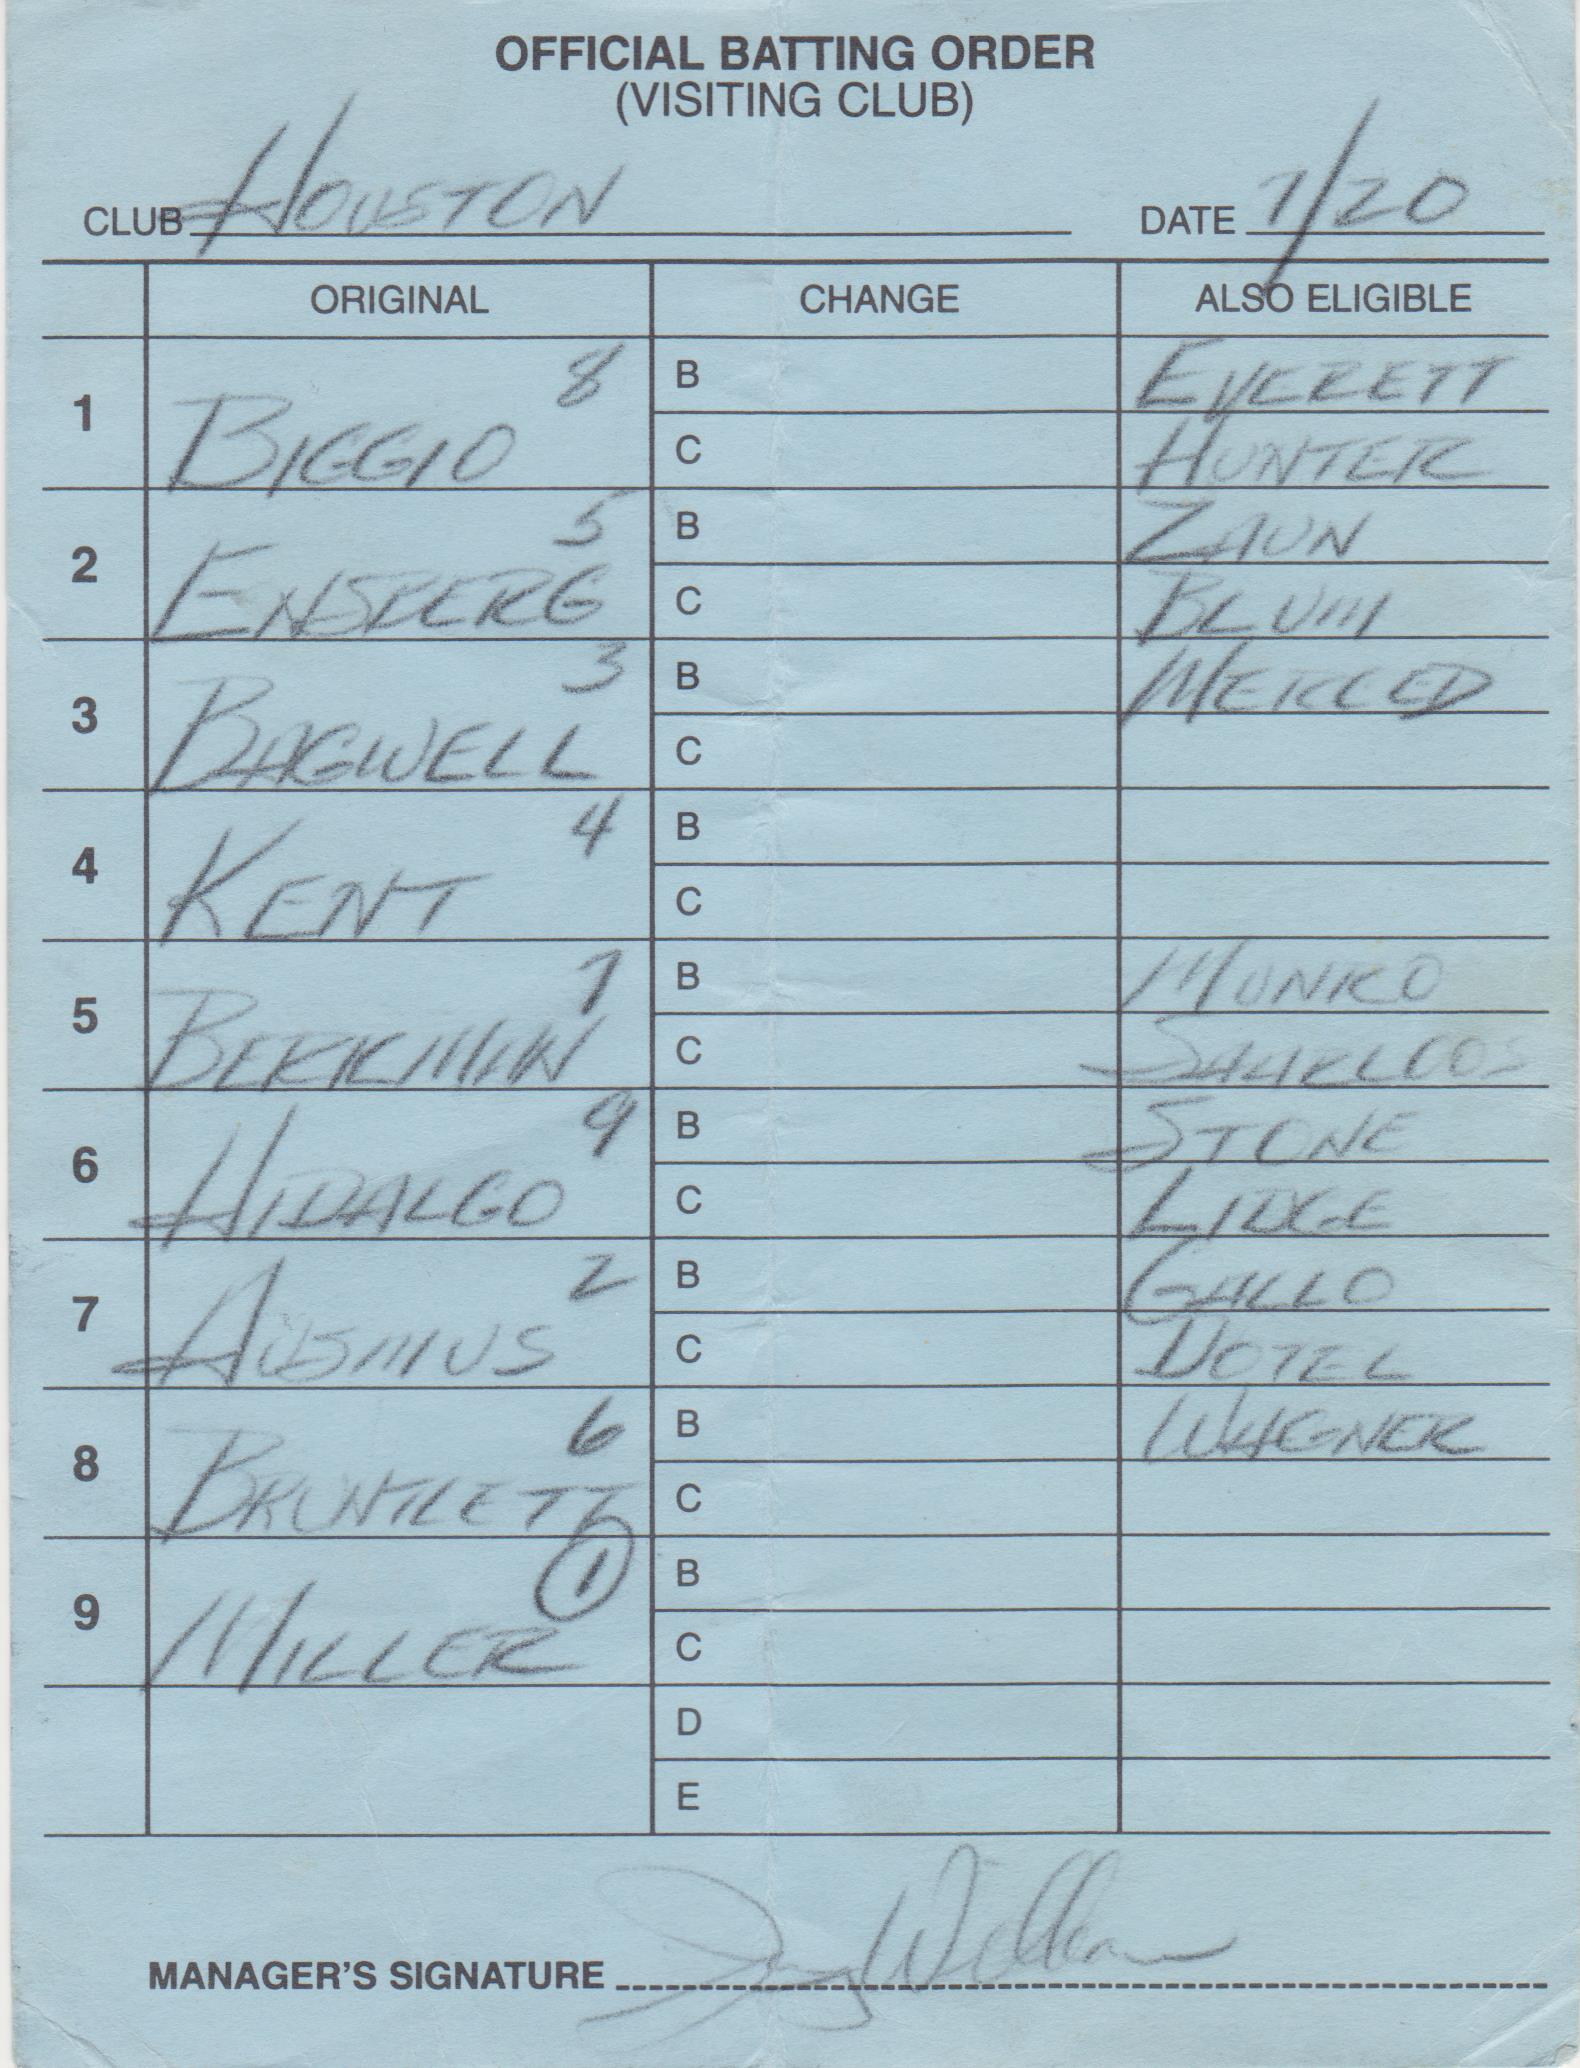 OFFICIAL BATTING ORDER
(VISITING CLUB)
CLUB HOUSTON DATE 7/20
ORIGINAL CHANGE ALSO ELIGIBLE
1 BIGGIO 8 B EVERETT
C HUNTER
2 ENSBERG 5 B ZAUN
C BLUM
3 BAGWELL 3 B MERCED
C
4 KENT 4 B
C
5 BERKMAN 7 B MUNRO
C SAARLOOS
6 HIDALGO 9 B STONE
C LIDGE
7 AUSMUS 2 B GALLO
C DOTEL
8 BRUNTLETT 6 B WAGNER
C
9 MILLER 1 B
C
D
E
MANAGER'S SIGNATURE Jimy Williams